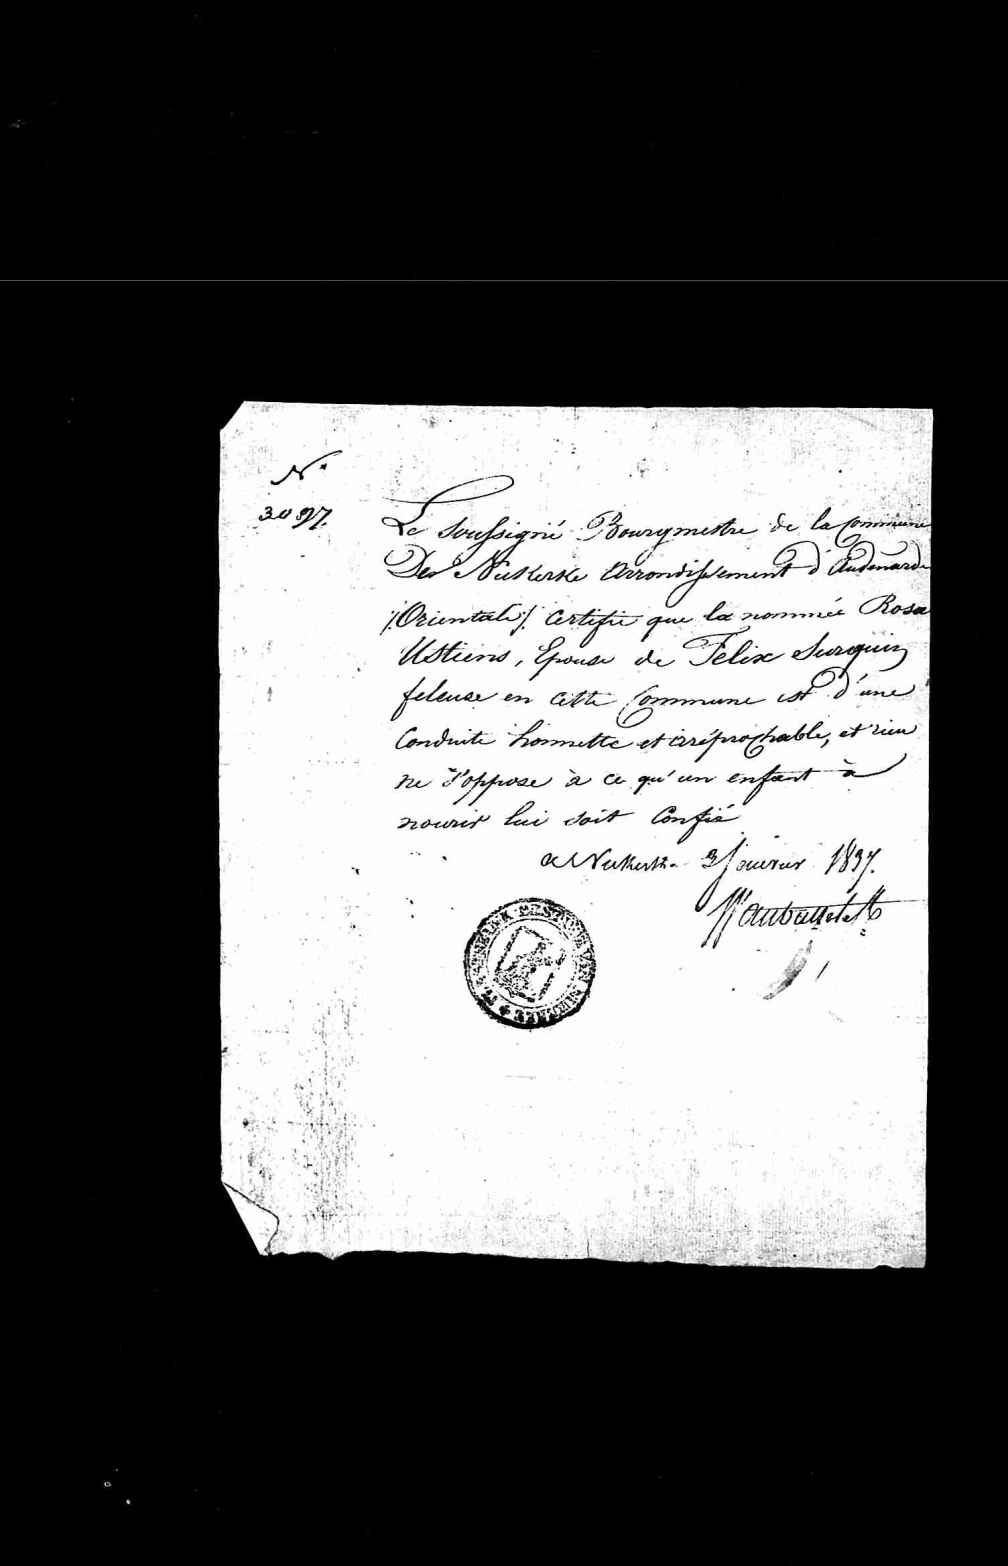 N°
3097.
Le soussigné Bourgmestre de la Commune
Des Nukerke Arrondissement d'Audenarde
/.Orientale./ Certifie que la nommée Rosa
Ustiens, Epouse de Felix Surquin
fileuse en cette Commune est d'une
Conduite honnette et irréprochable, et rien
ne s'oppose à ce qu'un enfant à
nourir lui soit Confié
a Nukerke 3 Janvier 1837.
BESTUUR VAN